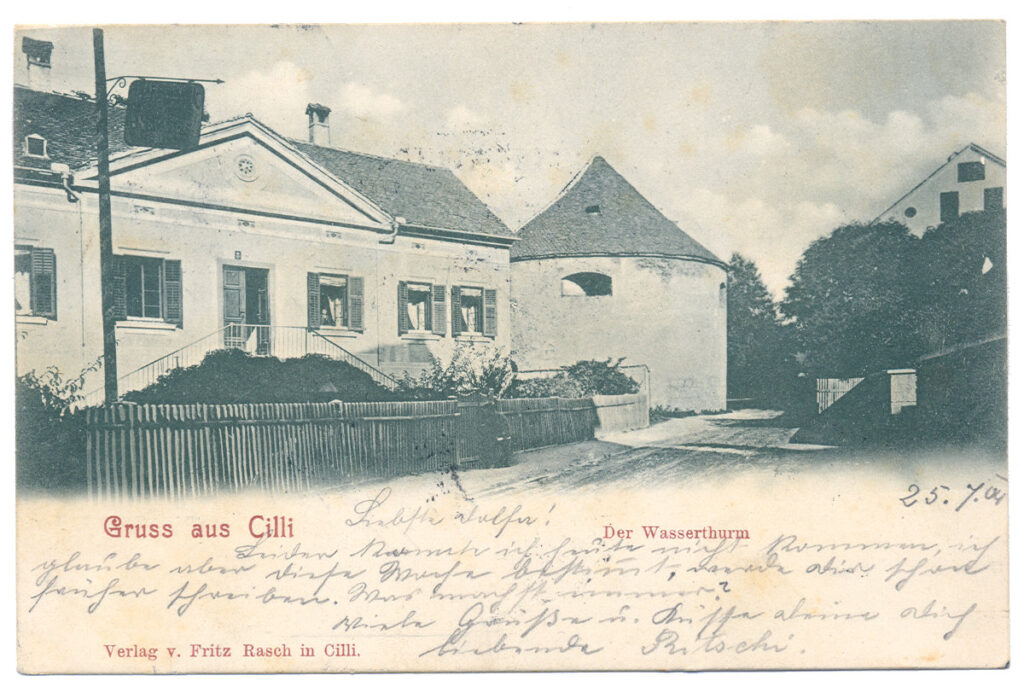 25. 7. 01
Gruss aus Cilli
Liebste Dolfa!
Der Wasserthurm
Leider konnte ich heute nicht kommen, ich
glaube aber diese Woche bestimmt, werde dir schon
früher schreiben. Was machst immer?
Viele Grüße u. Küsse deine dich
liebende Ritschi.
Verlag v. Fritz Rasch in Cilli.